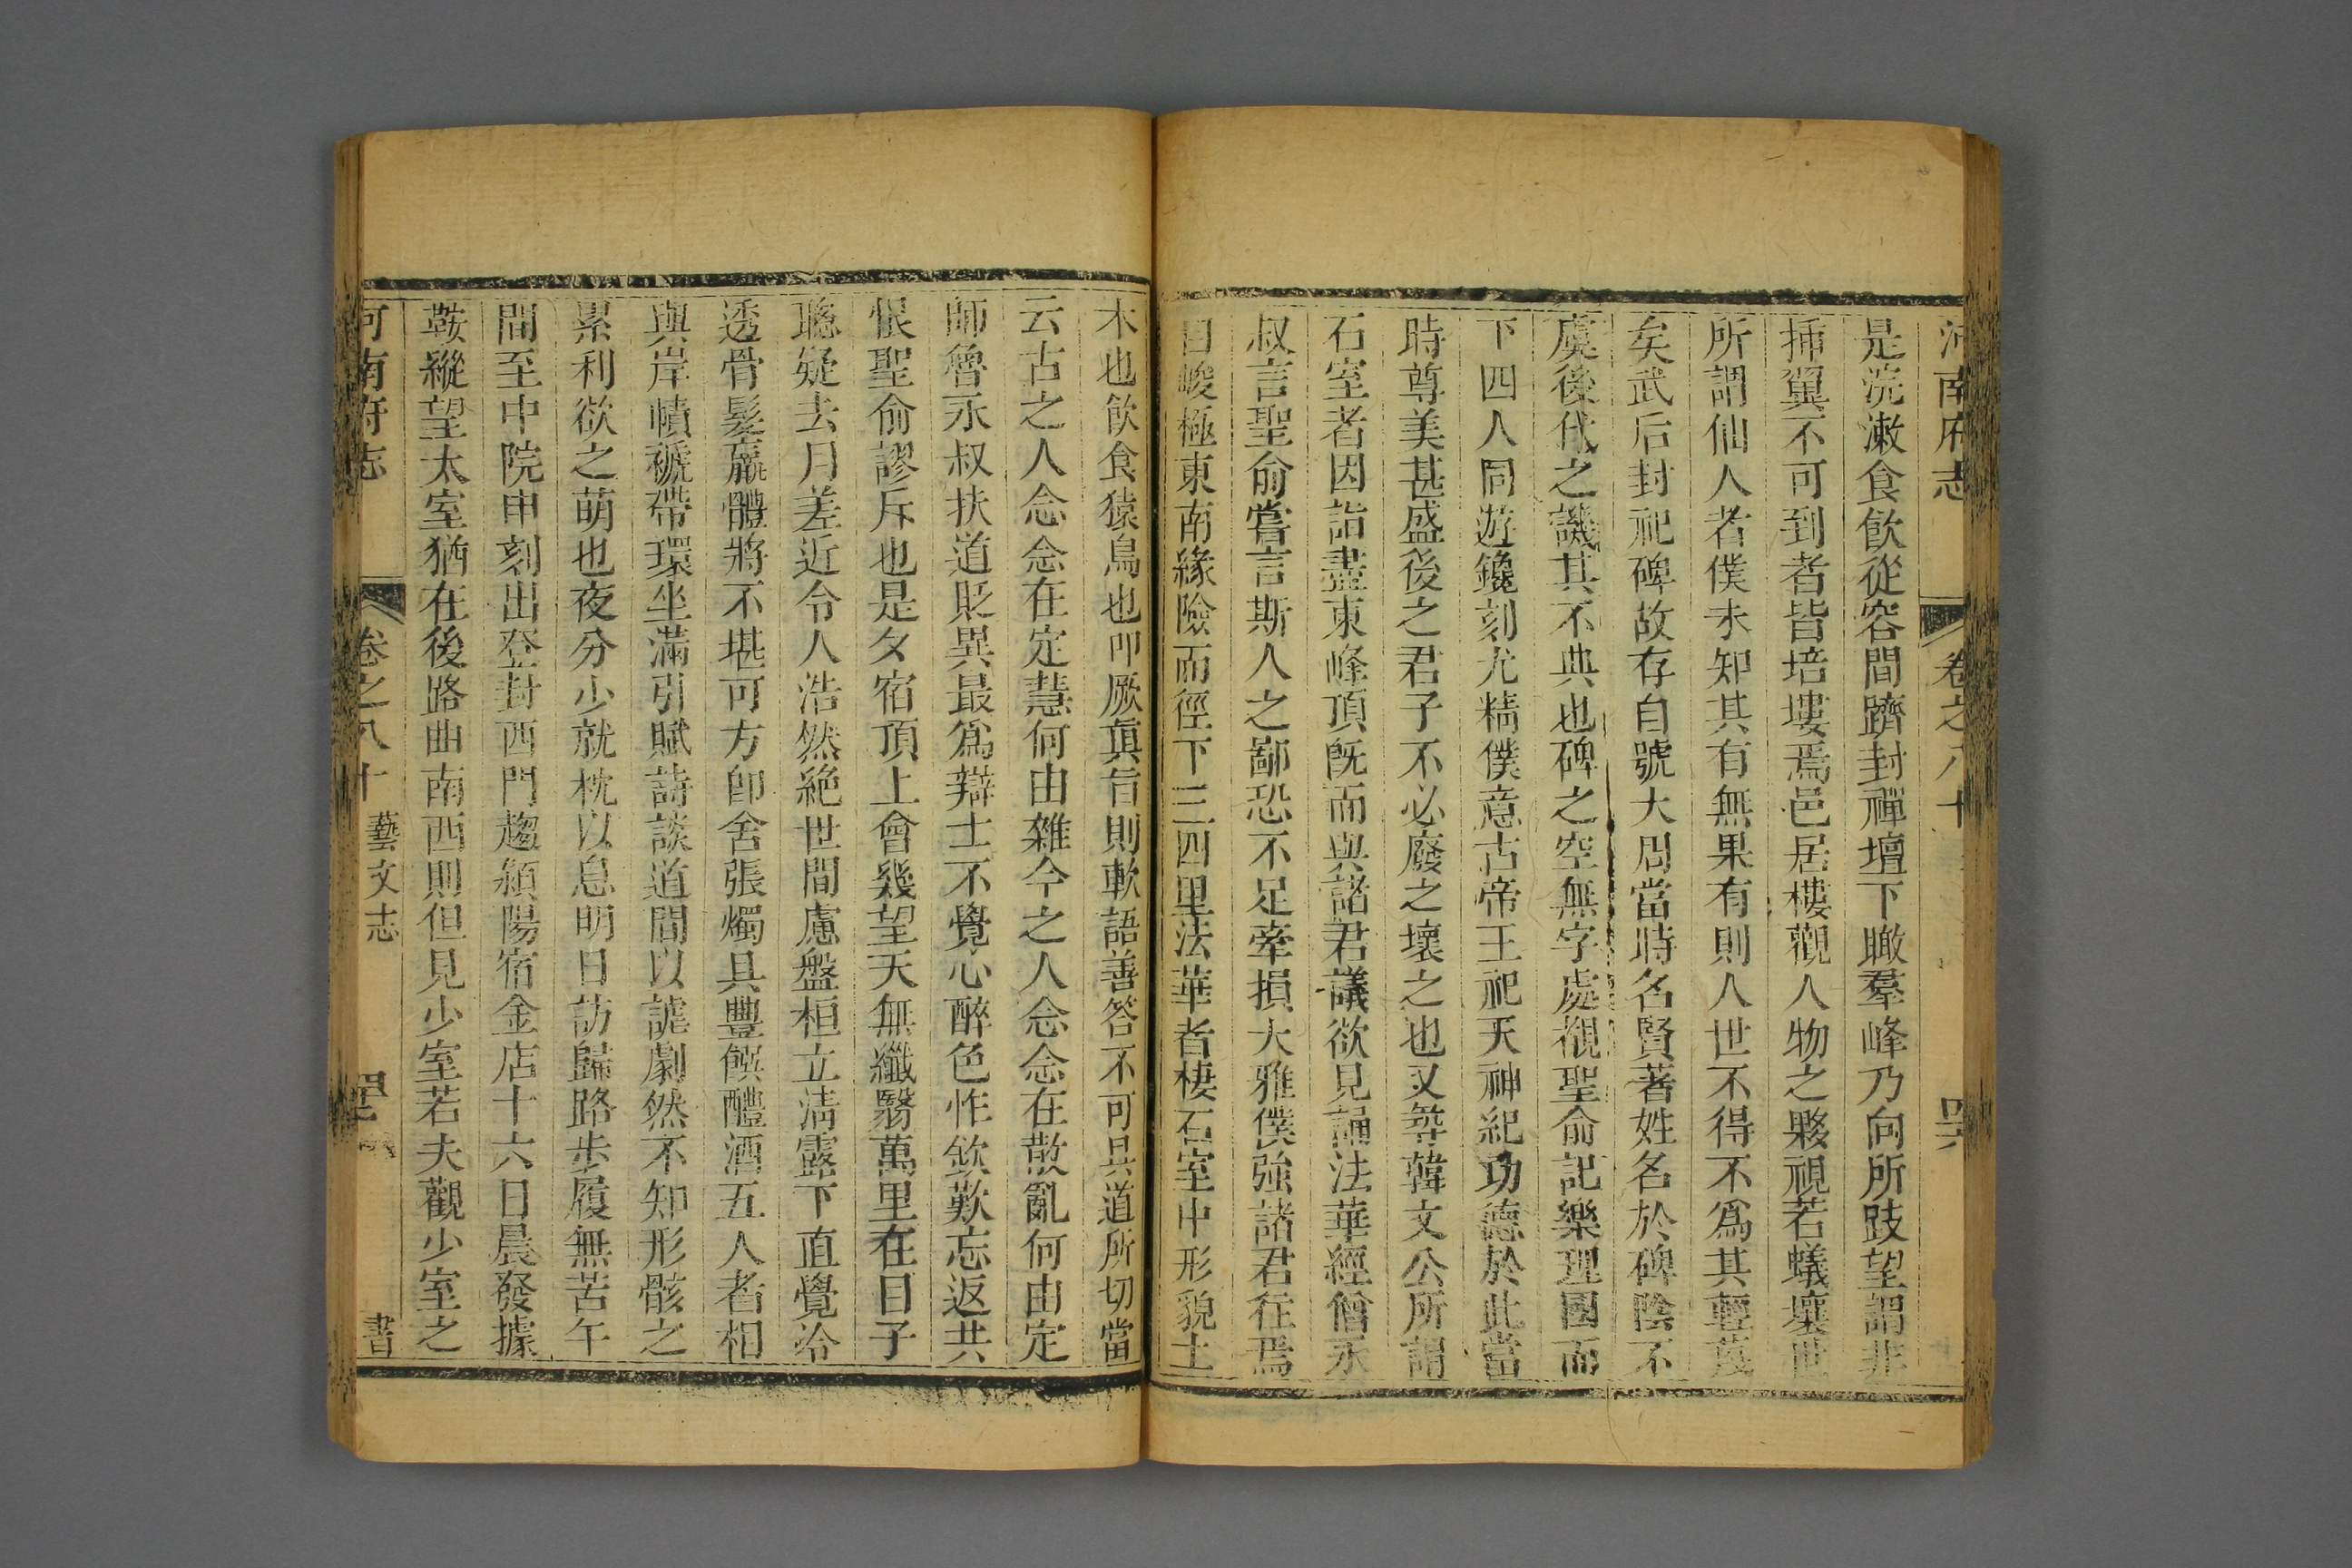 河南府志 卷之八十
是浣漱食飲從容間躋封禪壇下瞰羣峰乃向所跂望謂非
揷翼不可到者皆培塿焉邑居樓觀人物之夥視若蟻壤世
所謂仙人者僕未知其有無果有則人世不得不爲其輕蔑
矣武后封祀碑故存自號大周當時名賢著姓名於碑陰不
虞後代之譏其不典也碑之空無字處覩聖俞記樂理國而
下四人同遊鑱刻尤精僕意古帝王祀天神紀功德於此當
時尊美甚盛後之君子不必廢之壞之也又尋韓文公所謂
石室者因詣盡東峰頂旣而與諸君議欲見誦法華經僧永
叔言聖俞嘗言斯人之鄙恐不足牽損大雅僕強諸君往焉
自峻極東南緣險而徑下三四里法華者棲石室中形貌土
木也飮食猿鳥也叩厥眞旨則軟語善答不可具道所切當
云古之人念念在定慧何由雜今之人念念在散亂何由定
師魯永叔扶道貶異最爲辯士不覺心醉色怍欽歎忘返共
恨聖俞謬斥也是夕宿頂上會幾望天無纖翳萬里在目子
聰疑去月差近令人浩然絶世間慮盤桓立淸露下直覺冷
透骨髮羸體將不堪可方卽舍張燭具豐饌醴酒五人者相
與岸幘褫帶環坐滿引賦詩談道間以謔劇然不知形骸之
累利欲之萌也夜分少就枕以息明日訪歸路步履無苦午
間至中院申刻出登封西門趨潁陽宿金店十六日晨發據
鞍縱望太室猶在後路曲南西則但見少室若夫觀少室之
河南府志 卷之八十 藝文志 書